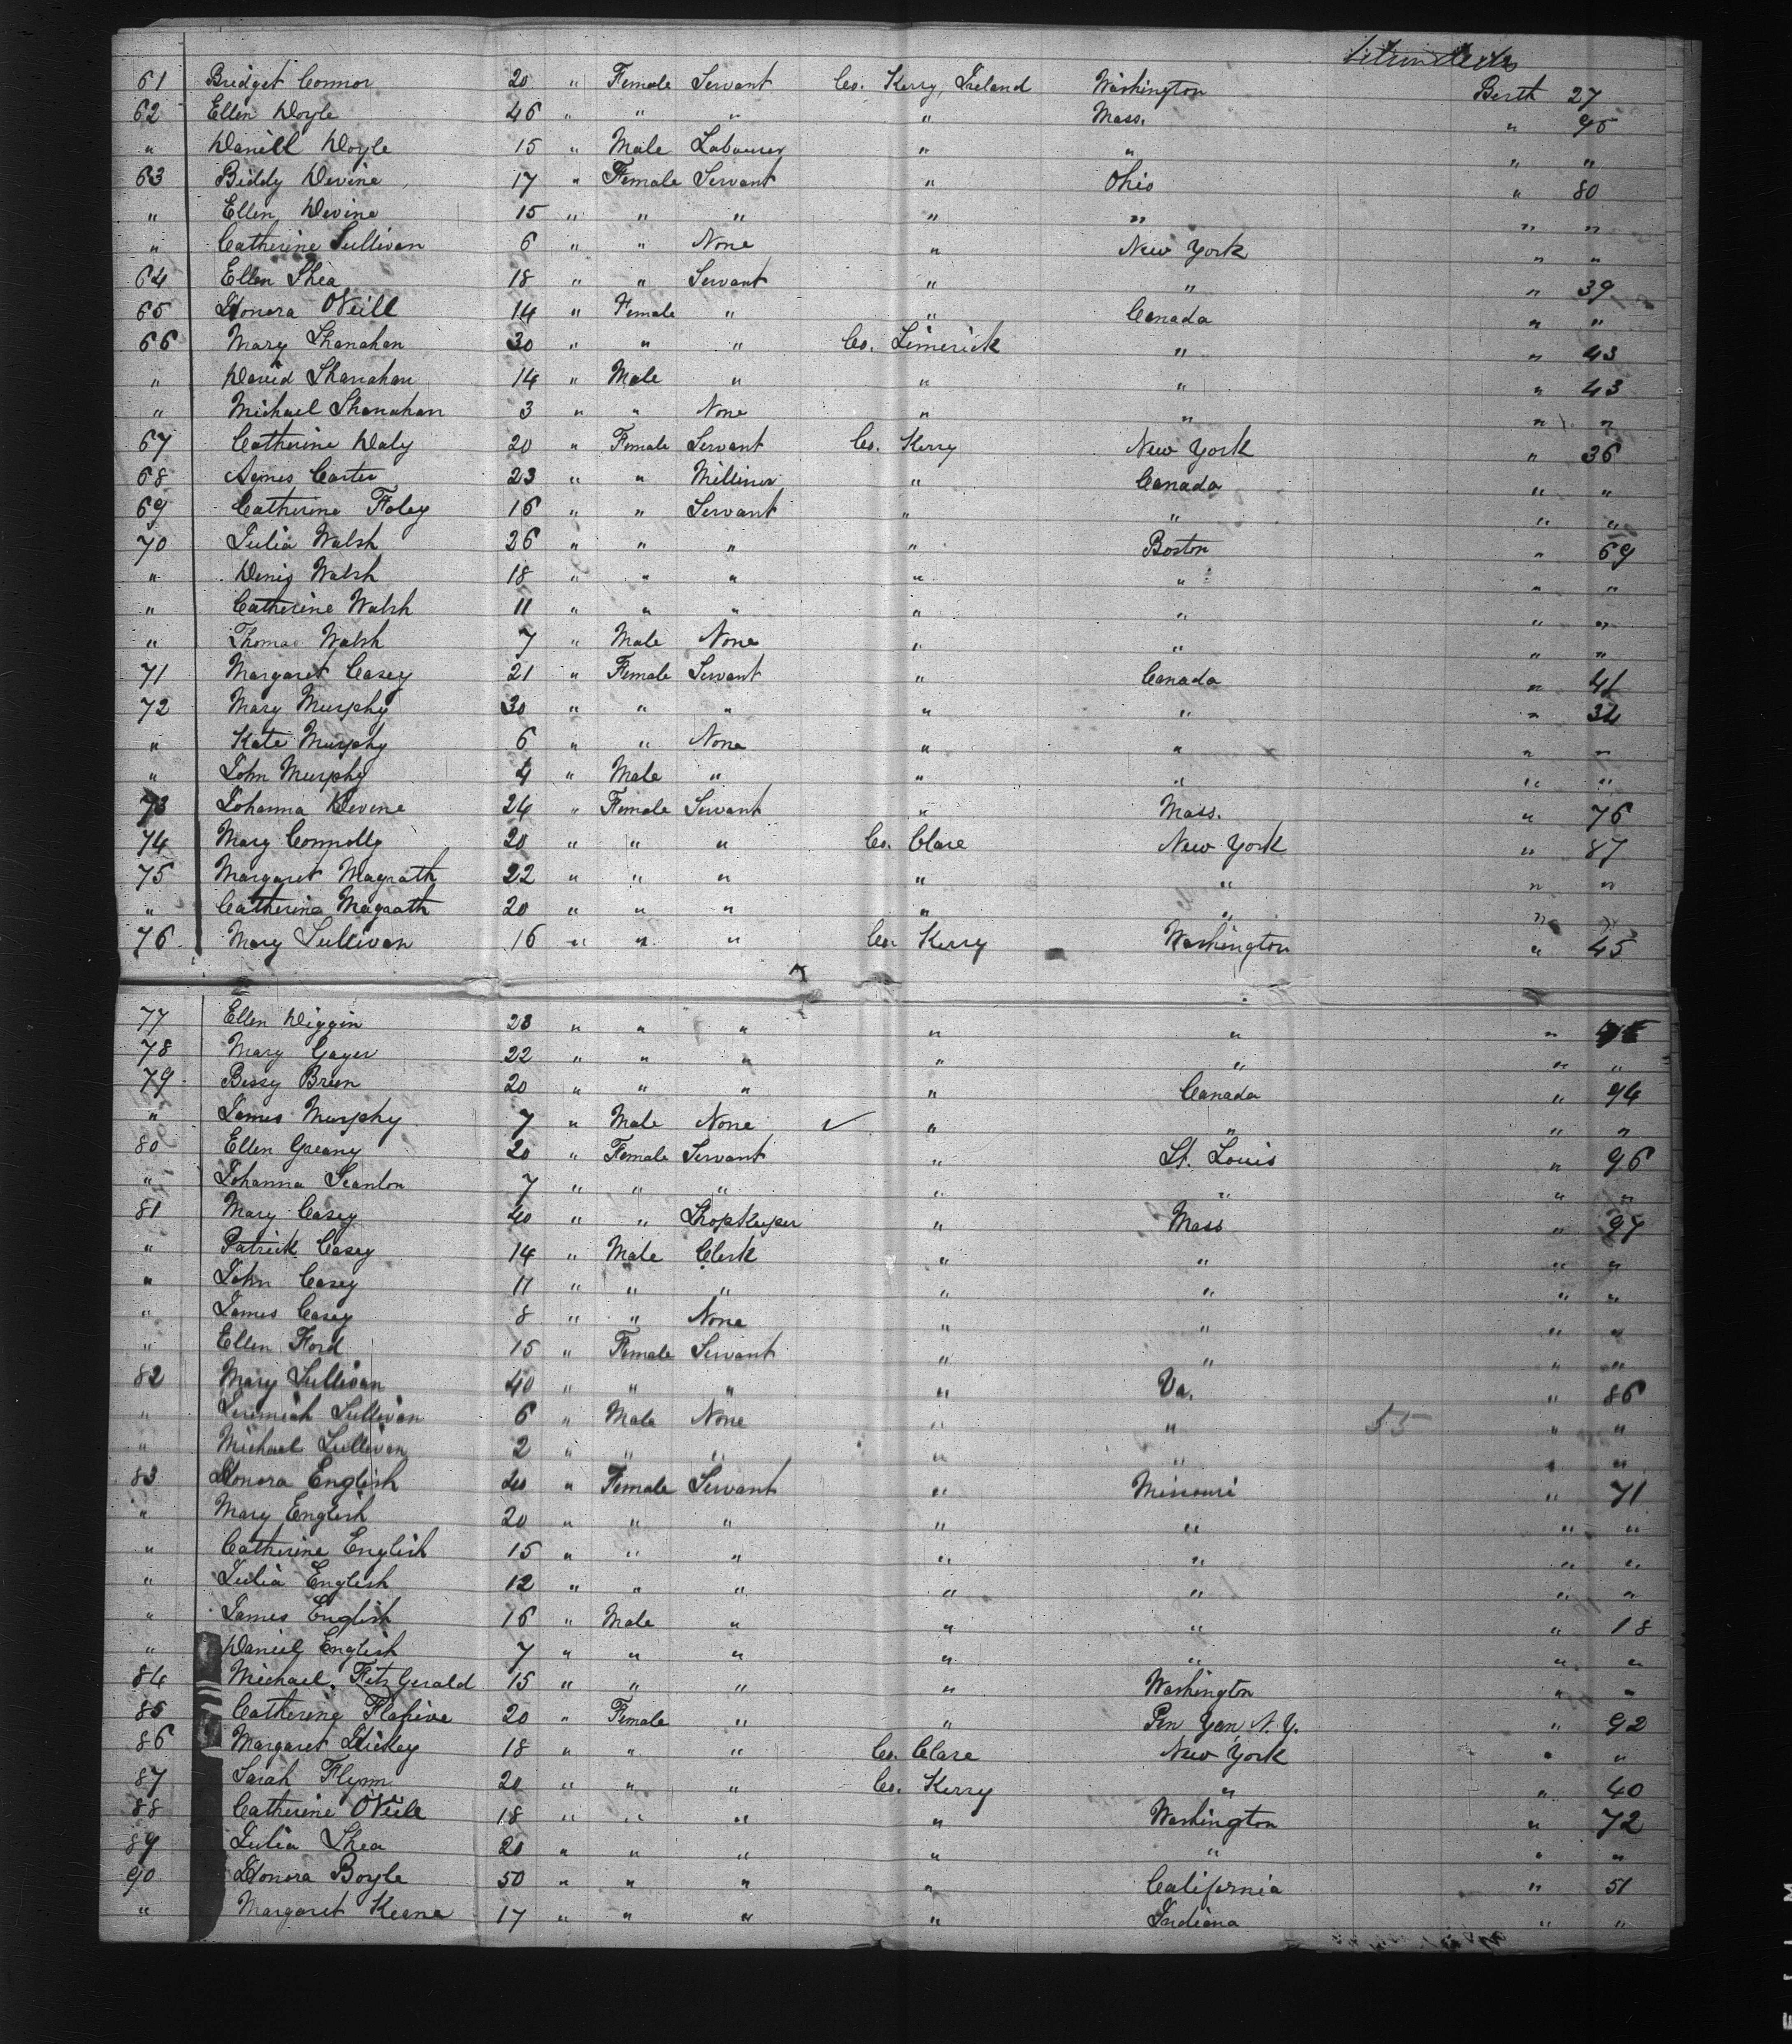 61 Bridget Connor 20 " Female Servant Co. Kerry, Ireland Washington Berth 27
62 Ellen Doyle 46 " " " " Mass. " 95
" Daniell Doyle 15 " Male Labourer " " " "
63 Biddy Devine 17 " Female Servant " Ohio " 80
" Ellen Devine 15 " " " " " " "
" Catherine Sullivan 6 " " None " New York " "
64 Ellen Shea 18 " " Servant " " " 39
65 Honora O'Neill 14 " Female " " Canada " "
66 Mary Shanahan 30 " " " Co. Limerick " " 43
" David Shanahan 14 " Male " " " " 43
" Michael Shanahan 3 " " None " " " "
67 Catherine Daly 20 " Female Servant Co. Kerry New York " 36
68 Agnes Carter 23 " " Milliner " Canada " "
69 Catherine Foley 16 " " Servant " " " "
70 Julia Walsh 26 " " " " Boston " 69
" Denis Walsh 18 " " " " " " "
" Catherine Walsh 11 " " " " " " "
" Thomas Walsh 7 " Male None " " " "
71 Margaret Casey 21 " Female Servant " Canada " 41
72 Mary Murphy 30 " " " " " " 34
" Kate Murphy 6 " " None " " " "
" John Murphy 4 " Male " " " " "
73 Johanna Devine 24 " Female Servant " Mass. " 76
74 Mary Connolly 20 " " " Co. Clare New York " 87
75 Margaret Magrath 22 " " " " " " "
" Catherine Magrath 20 " " " " " " "
76 Mary Sullivan 16 " " " Co. Kerry Washington " 45
77 Ellen Diggin 23 " " " " " "
78 Mary Gayer 22 " " " " " " "
79 Bessy Breen 20 " " " " Canada " 94
" James Murphy 7 " Male None ✓ " " " "
80 Ellen Greany 20 " Female Servant " St. Louis " 96
" Johanna Scanlon 7 " " " " " " "
81 Mary Casey 40 " " Shopkeeper " Mass " 97
" Patrick Casey 14 " Male Clerk " " " "
" John Casey 11 " " " " " " "
" James Casey 8 " " None " " " "
" Ellen Ford 15 " Female Servant " " " "
82 Mary Sullivan 40 " " " " Va. " 86
" Jeremiah Sullivan 6 " Male None " " 55 " "
" Michael Sullivan 2 " " " " " " "
83 Honora English 40 " Female Servant " Missouri " 71
" Mary English 20 " " " " " " "
" Catherine English 15 " " " " " " "
" Julia English 12 " " " " " " "
" James English 16 " Male " " " " 18
" Daniel English 7 " " " " " " "
84 Michael FitzGerald 15 " " " " Washington " "
85 Catherine Flahive 20 " Female " " Pen Yan, N.Y. " 92
86 Margaret Hickey 18 " " " Co. Clare New York " "
87 Sarah Flynn 20 " " " Co. Kerry " " 40
88 Catherine O'Neill 18 " " " " Washington " 72
89 Julia Shea 20 " " " " " " "
90 Honora Boyle 50 " " " " California " 51
" Margaret Keane 17 " " " " Indiana " "